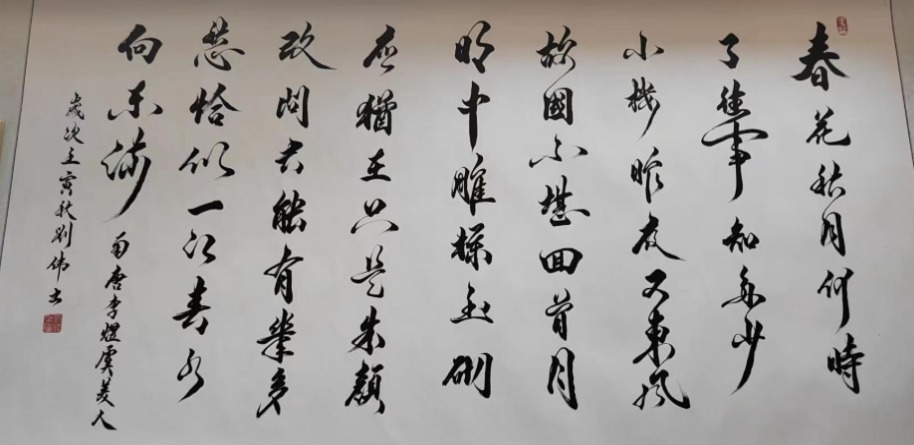 春花秋月何時
了往事知多少
小楼昨夜又东風
故國不堪回首月
明中雕梁玉砌
应猶在只是朱顏
改问君能有幾多
愁恰似一江春水
向东流
南唐李煜虞美人
歲次壬寅秋刘伟书